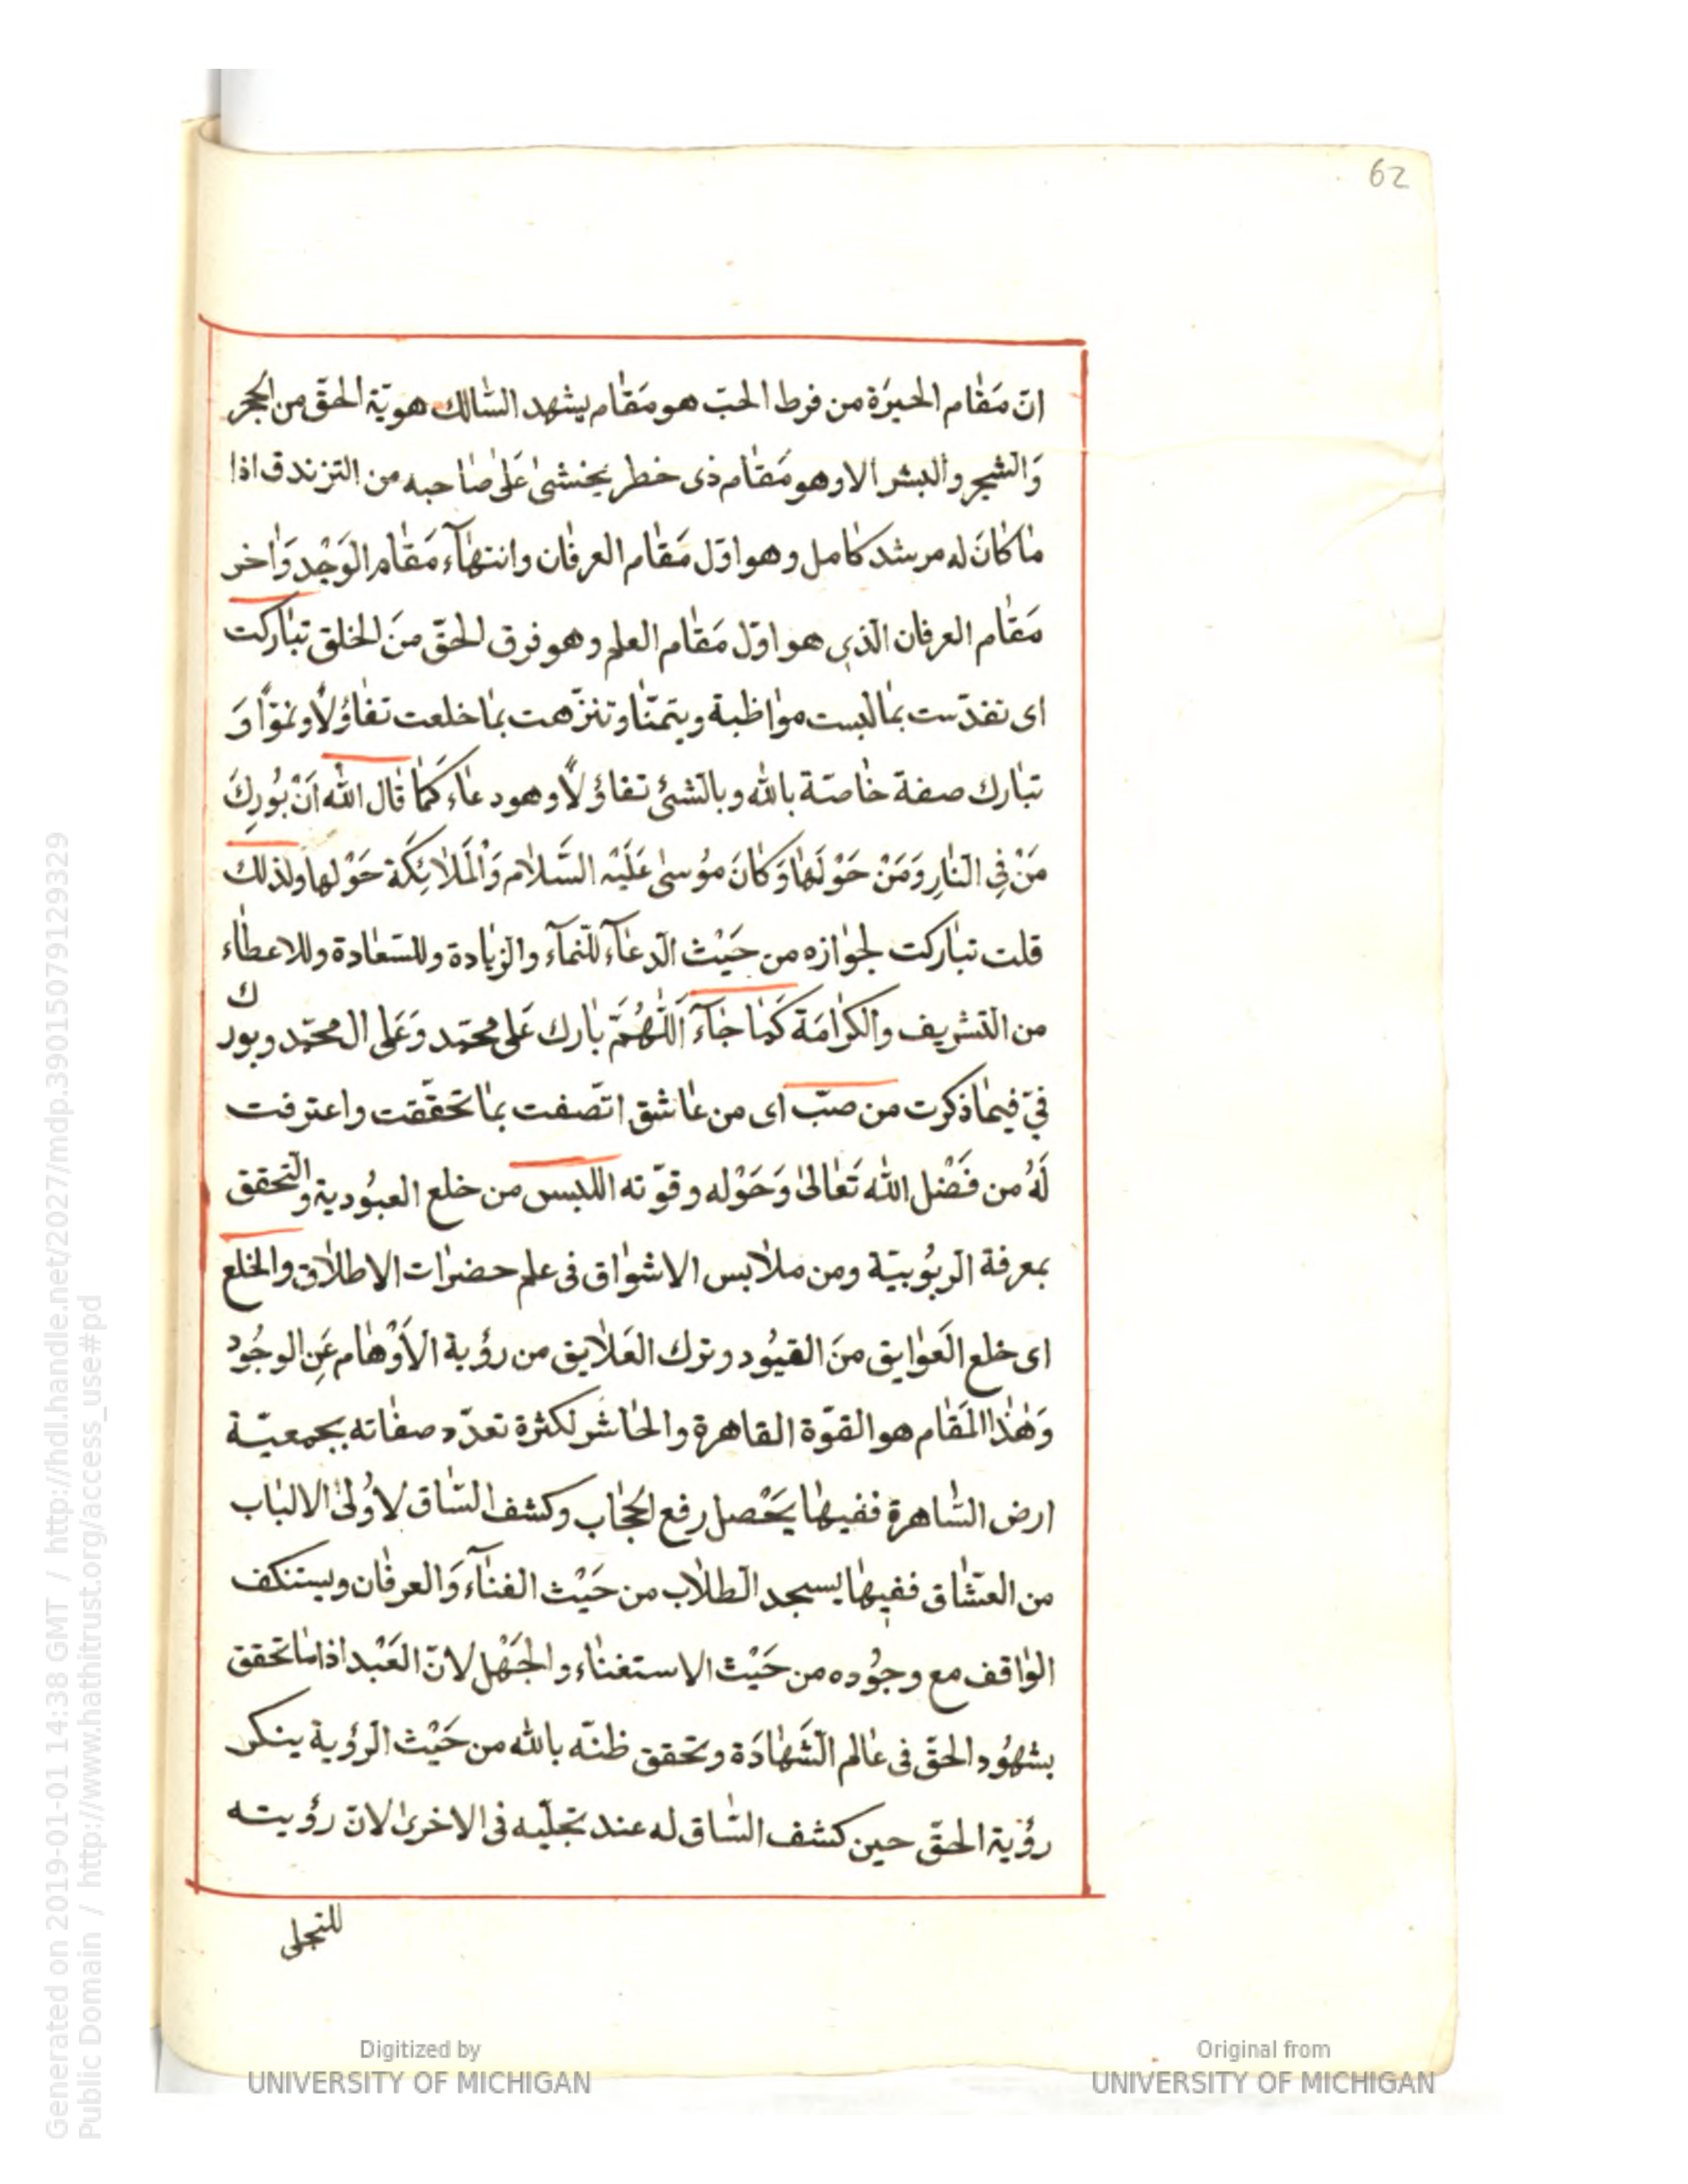 62
انّ مَقٰام الحيرَة من فرط الحبّ هو مَقٰام يشهد السّٰالك هويّة الحقّ من الحجر
وَالشجر والبشر الا وهو مَقٰام ذى خطر يخشىٰ عَلىٰ صٰاحبه من التزندق اذا
مٰا كٰانَ له مرشد كٰامل وهو اوّل مَقٰام العرفٰان وانتهٰآء مَقٰام الوَجْد وَاٰخر
مَقٰام العرفان الّذى هو اوّل مَقٰام العلم وهو فرق الحقّ منَ الخلق تبٰاركت
اى تقدّست بمٰا لبست موٰاظبة ويتمنّا وتنزّهت بمٰا خلعت تفٰاؤلًا ونموًّا وَ
تبٰارك صفة خٰاصّة بالله وبالشئ تفاؤلًا وهو دعٰاء كَمٰا قٰال اللّٰه اَنْ بُورِكَ
مَنْ فِى النّٰارِ وَمَنْ حَوْلَهٰا وَكٰانَ مُوسىٰ عَلَيْه السَّلٰام وَالْمَلٰائِكَة حَوْلها ولذلك
قلت تبٰاركت لجوٰازه من حَيْث الدعٰآء للنّمآء والزيٰادة وللسّعٰادة وللاعطٰاء
من التشريف والكرٰامَة كَمٰا جٰآءَ اَللّٰهُمَّ بٰارك عَلى محمّد وَعَلى ال محمّد وبورك
فيّ فيمٰا ذكرت من صبّ اى من عٰاشق اتّصفت بمٰا تحقّقت واعترفت
لَهُ من فَضْل اللّٰه تَعٰالىٰ وَحَوْله وقوّته اللبس من خلع العبُودية والتحقق
بمعرفة الربُوبيّة ومن ملٰابس الاشوٰاق فى علم حضرٰات الاطلٰاق والخلع
اى خلع العَوٰايق منَ القيُود وترك العَلٰايق من رؤية الاَوْهٰام عَنِ الوجُود
وَهٰذا المَقٰام هو القوّة القاهرة والحٰاشر لكثرة تعدّد صفٰاته بجمعيّة
ارض السّٰاهرة ففيهٰا يَحْصل رفع الحجٰاب وكشف السّٰاق لاُولىٰ الالبٰاب
من العشّٰاق ففيهٰا يسجد الطلٰاب من حَيْث الفنٰآء وَالعرفٰان ويستنكف
الوٰاقف مع وجُوده من حَيْث الاستغنٰاء والجَهْل لانّ العَبْد اذا مٰا تحقق
بشهُود الحقّ فى عٰالم الشَّهٰادَة وتحقق ظنّه بالله من حَيْث الرؤية ينكر
رؤية الحقّ حين كشف السّٰاق له عند تجلّيه فى الاخرىٰ لانّ رؤيته
للتجلى
Digitized by
UNIVERSITY OF MICHIGAN
Original from
UNIVERSITY OF MICHIGAN
Generated on 2019-01-01 14:38 GMT / http://hdl.handle.net/2027/mdp.39015079129329
Public Domain / http://www.hathitrust.org/access_use#pd